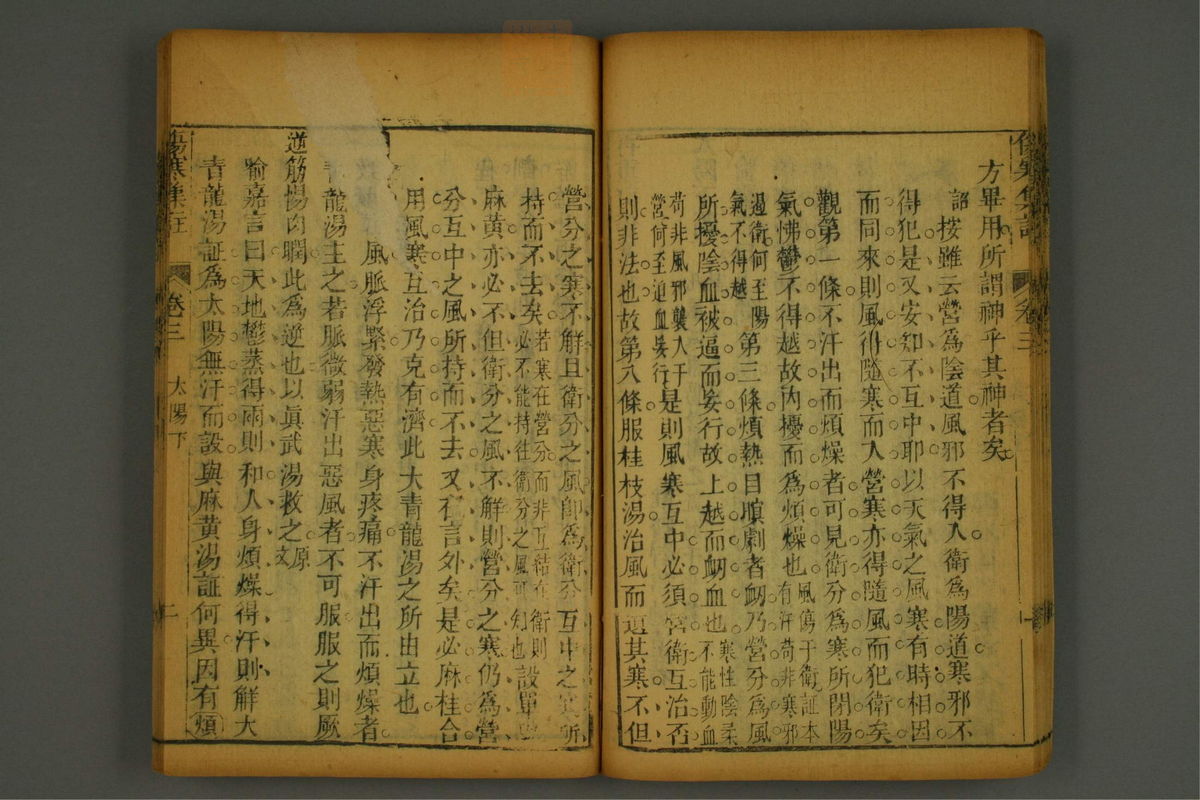 方畢用所謂神乎其神者矣
詔按雖云營為陰道風邪不得入衛為陽道寒邪不
得犯是又安知不互中耶以天氣之風寒有時相因
而同來則風得隨寒而入營寒亦得隨風而犯衛矣
觀第一條不汗出而煩燥者可見衛分為寒所閉陽
氣怫鬱不得越故內擾而為煩燥也風傷于衛証本
有汗苟非寒邪
過衛何至陽
氣不得越第三條煩熱目瞑劇者衂乃營分為風
所擾陰血被逼而妄行故上越而衂血也寒性陰柔
不能動血
苟非風邪襲入于
營何至迫血妄行是則風寒互中必須營衛互治否
則非法也故第八條服桂枝湯治風而遺其寒不但
營分之寒不解且衛分之風卽為衛分互中之寒所
持而不去矣若寒在營分而非互結在衛則
必不能持往衛分之風可知也設單
麻黃亦必不但衛分之風不解則營分之寒仍為營
分互中之風所持而不去又在言外矣是必麻桂合
用風寒互治乃克有濟此大青龍湯之所由立也
風脈浮緊發熱惡寒身疼痛不汗出而煩燥者
青龍湯主之若脈微弱汗出惡風者不可服服之則厥
逆筋惕肉瞤此為逆也以眞武湯救之原文
喻嘉言曰天地鬱蒸得雨則和人身煩燥得汗則解大
青龍湯証為太陽無汗而設與麻黃湯証何異因有煩
傷寒集註
卷三
太陽下
二
傷寒集註
卷三